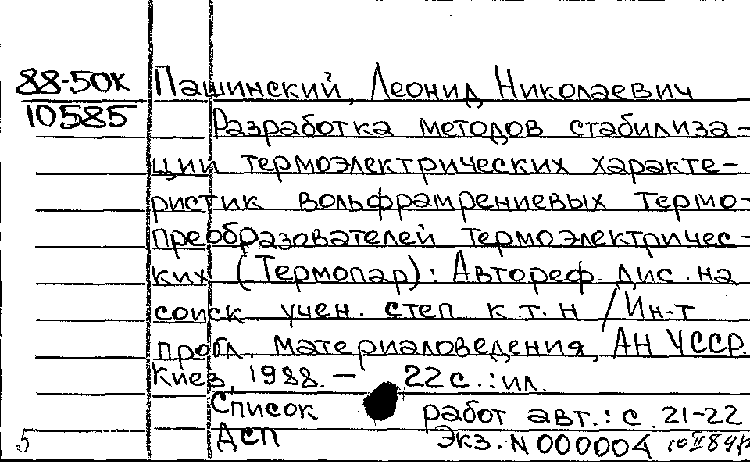 88-50К Пашинский, Леонид Николаевич
10585 Разработка методов стабилиза-
ции термоэлектрических характе-
ристик вольфрамрениевых термо-
преобразователей термоэлектричес-
ких (Термопар): Автореф. дис. на
соиск учен. степ к. т. н /Ин-т
пробл. материаловедения, АН УССР.
Киев, 1988. — 22 с.: ил.
Список работ авт.: с. 21-22
5 ДСП Экз. N 000004